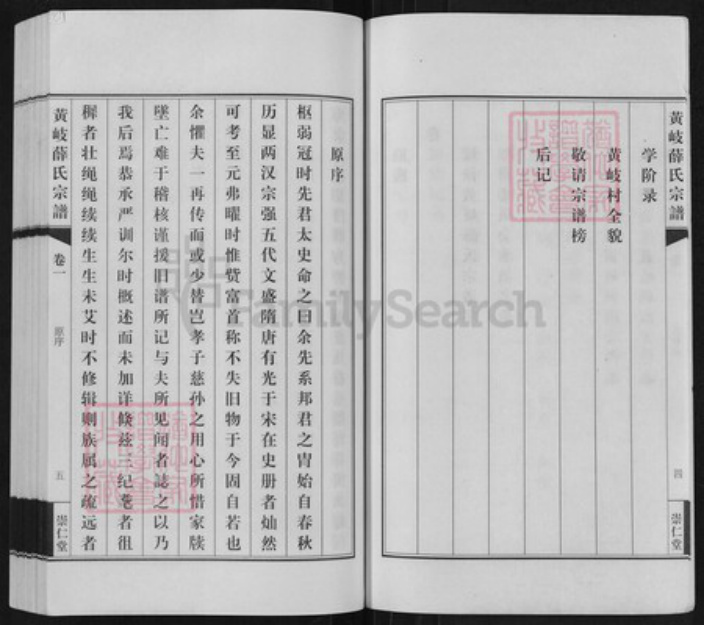 黄岐薛氏宗譜
学阶录
黄岐村全貌
敬请宗谱榜
后记
四
崇仁堂
原序
枢弱冠时先君太史命之曰余先系邦君之胄始自春秋
历显两汉宗强五代文盛隋唐有光于宋在史册者灿然
可考至元弗曜时惟赀富首称不失旧物于今固自若也
余惧夫一再传而或少替岂孝子慈孙之用心所惜家牍
坠亡难于稽核谨援旧谱所记与夫所见闻者誌之以乃
我后焉恭承严训尔时概述而未加详倏兹三纪耄者徂
穉者壮绳绳续续生生未艾时不修辑则族属之疏远者
黄岐薛氏宗譜
卷一
原序
五
崇仁堂
FamilySearch